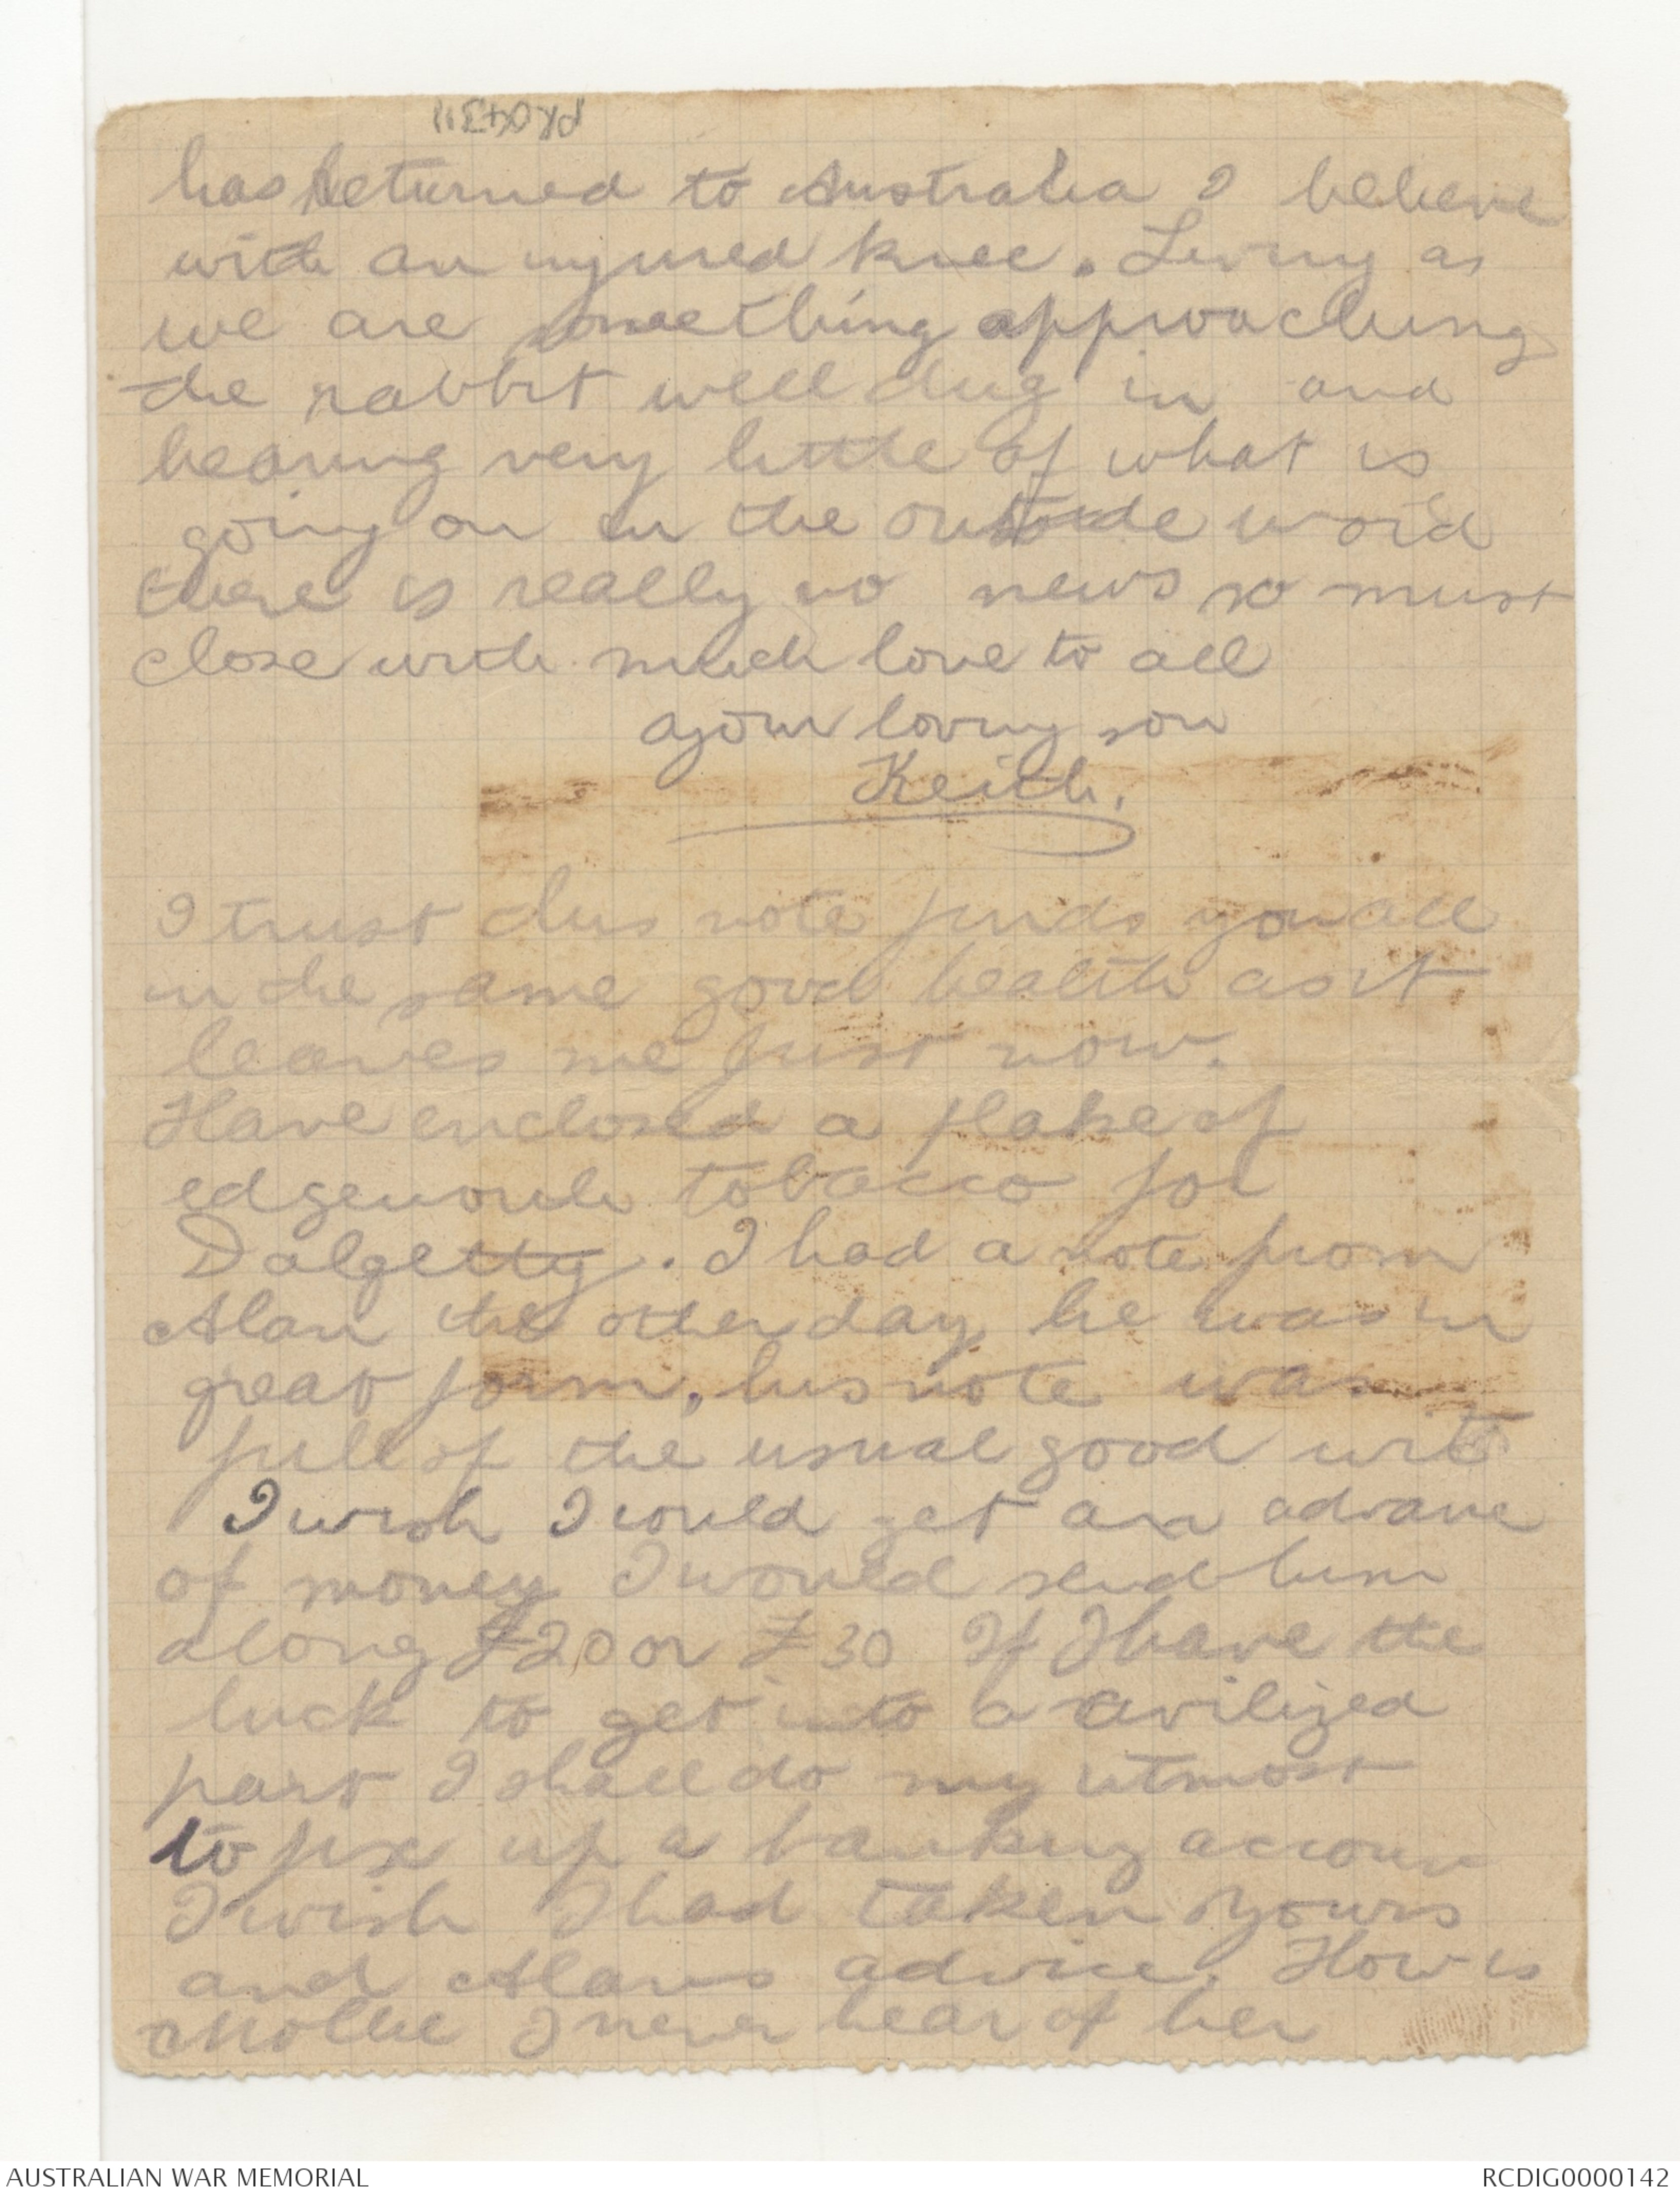 PR04311
has returned to Australia I believe
with an injured knee. Living as
we are something approaching
the rabbit well dug in and
hearing very little of what is
going on in the outside word
there is really no news so must
close with much love to all
your loving son
Keith.
I trust this note finds you all
in the same good health as it
leaves me just now.
Have enclosed a flake of
edgeworth tobacco for
Dalgetty. I had a note from
Alan the other day he was in
great form, his note was
full of the usual good wit
I wish I could get an advance
of money I would send him
along £20 or £30 If I have the
luck to get into a civilized
part I shall do my utmost
to fix up a banking account
I wish I had taken yours
and Alans advice. How is
Mollie I never hear of her
AUSTRALIAN WAR MEMORIAL
RCDIG0000142